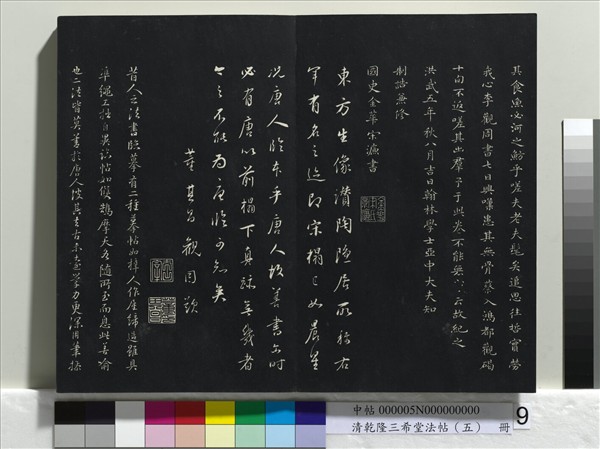 其食魚必河之魴乎嗟夫老夫髦矣追思往哲實勞
我心李觀周書七日興嘆患其無骨蔡入鴻都觀碣
十旬不返嗟其出群予于此卷不能無 云故紀之
洪武五年秋八月吉日翰林學士亞中大夫知
制誥兼修
國史金華宋濂書
東方生像讚陶隱居所稱右
軍有名之迹即宋搨已如晨星
況唐人臨本乎唐人故善書當時
必有唐以前搨下真跡無幾者
今之不能為唐臨可知矣
董其昌觀因題
昔人云法書臨摹有二種摹帖如梓人作室梁櫨雖具
準繩工拙自其
臨帖如
鵠摩天各隨所至而息此善喻
也二法皆莫善於唐人
其去古未遠學力更深用筆
中帖 000005N000000000
清乾隆三希堂法帖(五) 冊
9